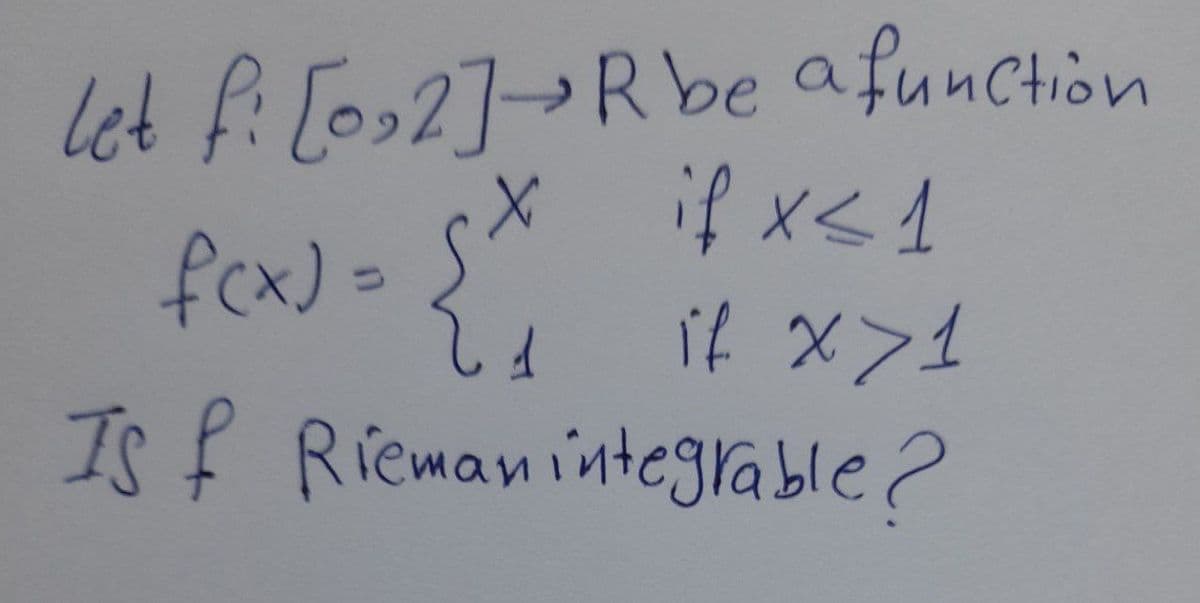 let f: [0,2]→R be a function
f(x) = { x if x≤1
1 if x>1
Is f Rieman integrable?